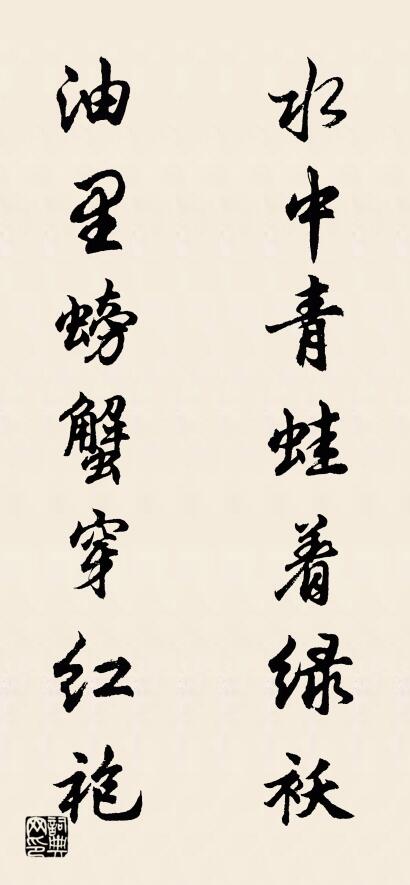 水中青蛙着绿袄
油里螃蟹穿红袍
词典网印